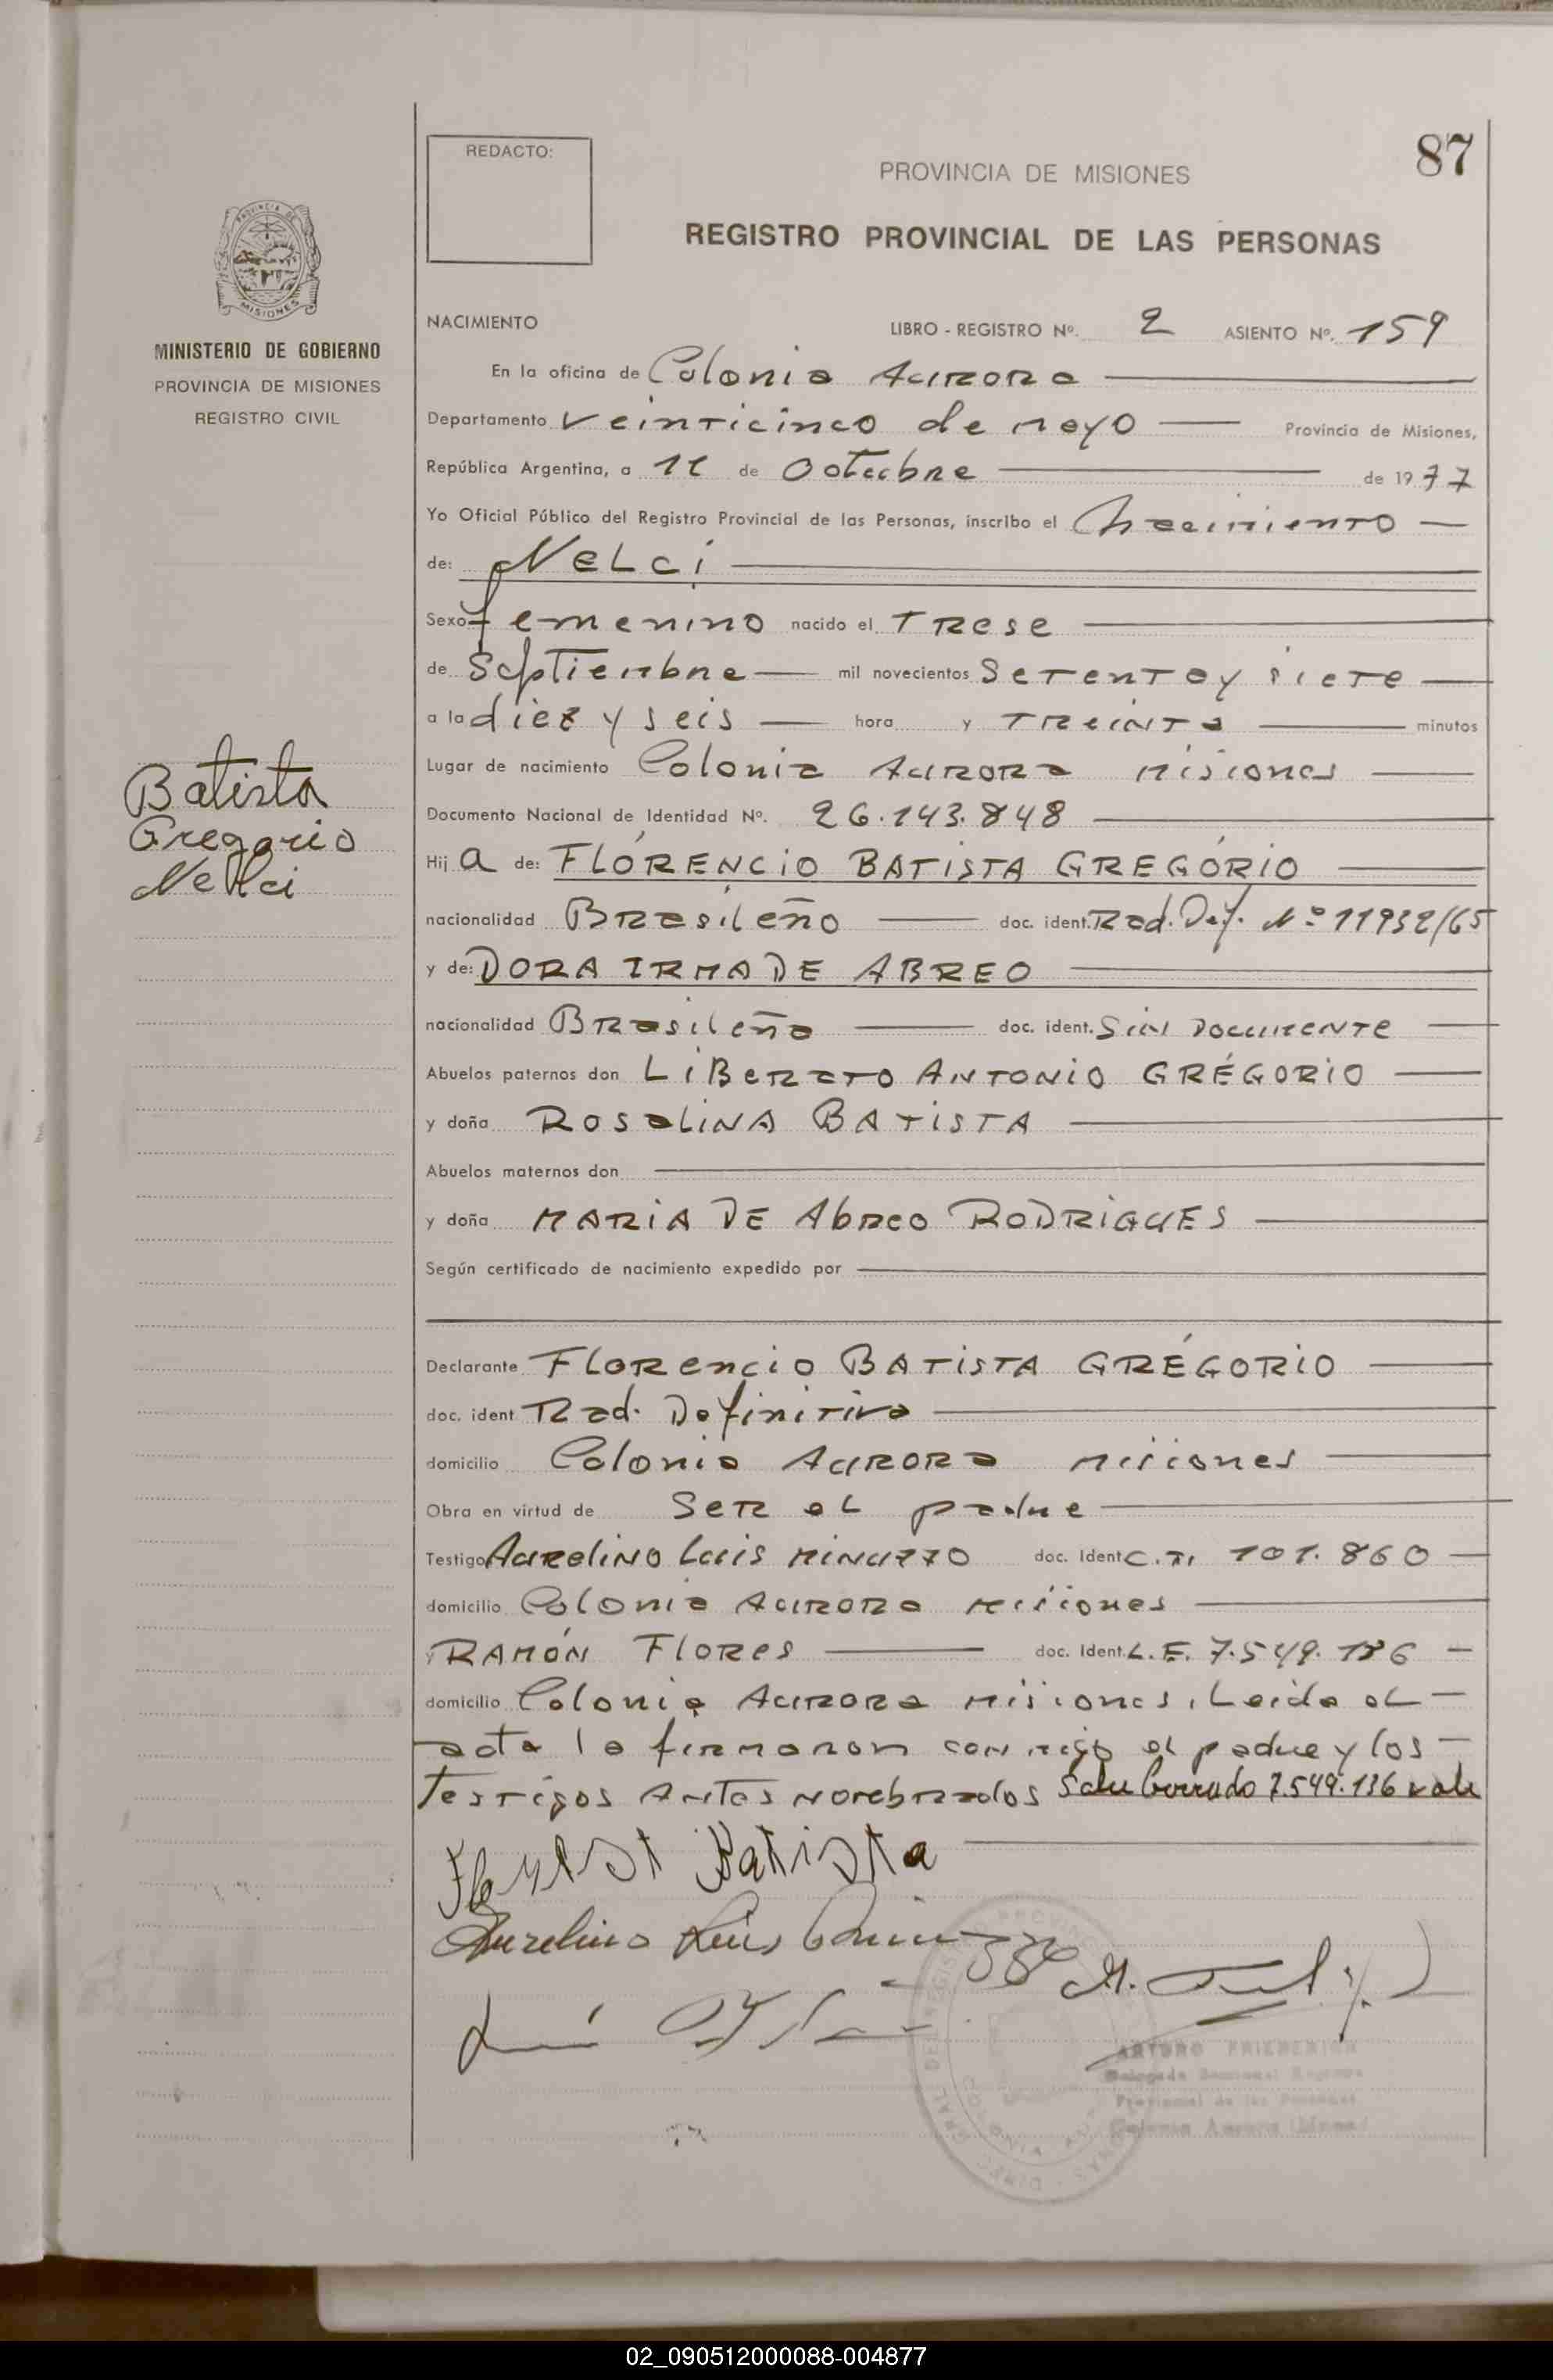 87
REDACTO:
PROVINCIA DE MISIONES
REGISTRO PROVINCIAL DE LAS PERSONAS
PROVINCIA DE
MISIONES
MINISTERIO DE GOBIERNO
PROVINCIA DE MISIONES
REGISTRO CIVIL
NACIMIENTO LIBRO - REGISTRO Nº. 2 ASIENTO Nº. 159
En la oficina de Colonia Aurora
Departamento Veinticinco de mayo Provincia de Misiones,
República Argentina, a 11 de Octubre de 1977
Yo Oficial Público del Registro Provincial de las Personas, inscribo el Nacimiento
de: NELCi
Sexo femenino nacido el Trese
de Septiembre mil novecientos Setenta y siete
a la diez y seis hora y Treinta minutos
Lugar de nacimiento Colonia Aurora Misiones
Documento Nacional de Identidad Nº. 26.143.848
Batista
Gregorio
Nelci
Hija de: FLÓRENCiO BATiSTA GREGÓRiO
nacionalidad Brasileño doc. ident. Rad. Def. Nº 11932/65
y de: DORA IRMA DE ABREO
nacionalidad Brasileña doc. ident. Sin Documente
Abuelos paternos don LiBerato ANTONiO GRÉGORiO
y doña ROSaLiNA BATiSTA
Abuelos maternos don
y doña MARiA DE Abreo RODRiGUES
Según certificado de nacimiento expedido por
Declarante FLORencio BATiSTA GRÉGORiO
doc. ident Rad. Definitiva
domicilio Colonia Aurora Misiones
Obra en virtud de Ser el padre
Testigo Aurelino Luis Minuzzo doc. Ident C.I. 101.860
domicilio Colonia Aurora Misiones
y RAMÓN FLORES doc. Ident. L.E. 7.549.136
domicilio Colonia Aurora Misiones, Leida el
acta la firmaron conmigo el padre y los
Testigos Antes nombrados Sobre borrado 7.549.136 vale
Batista
Aurelino Luis
ARTURO FRIEDERICH
Provincial de las Personas
Colonia Aurora (Mnes)
02_090512000088-004877